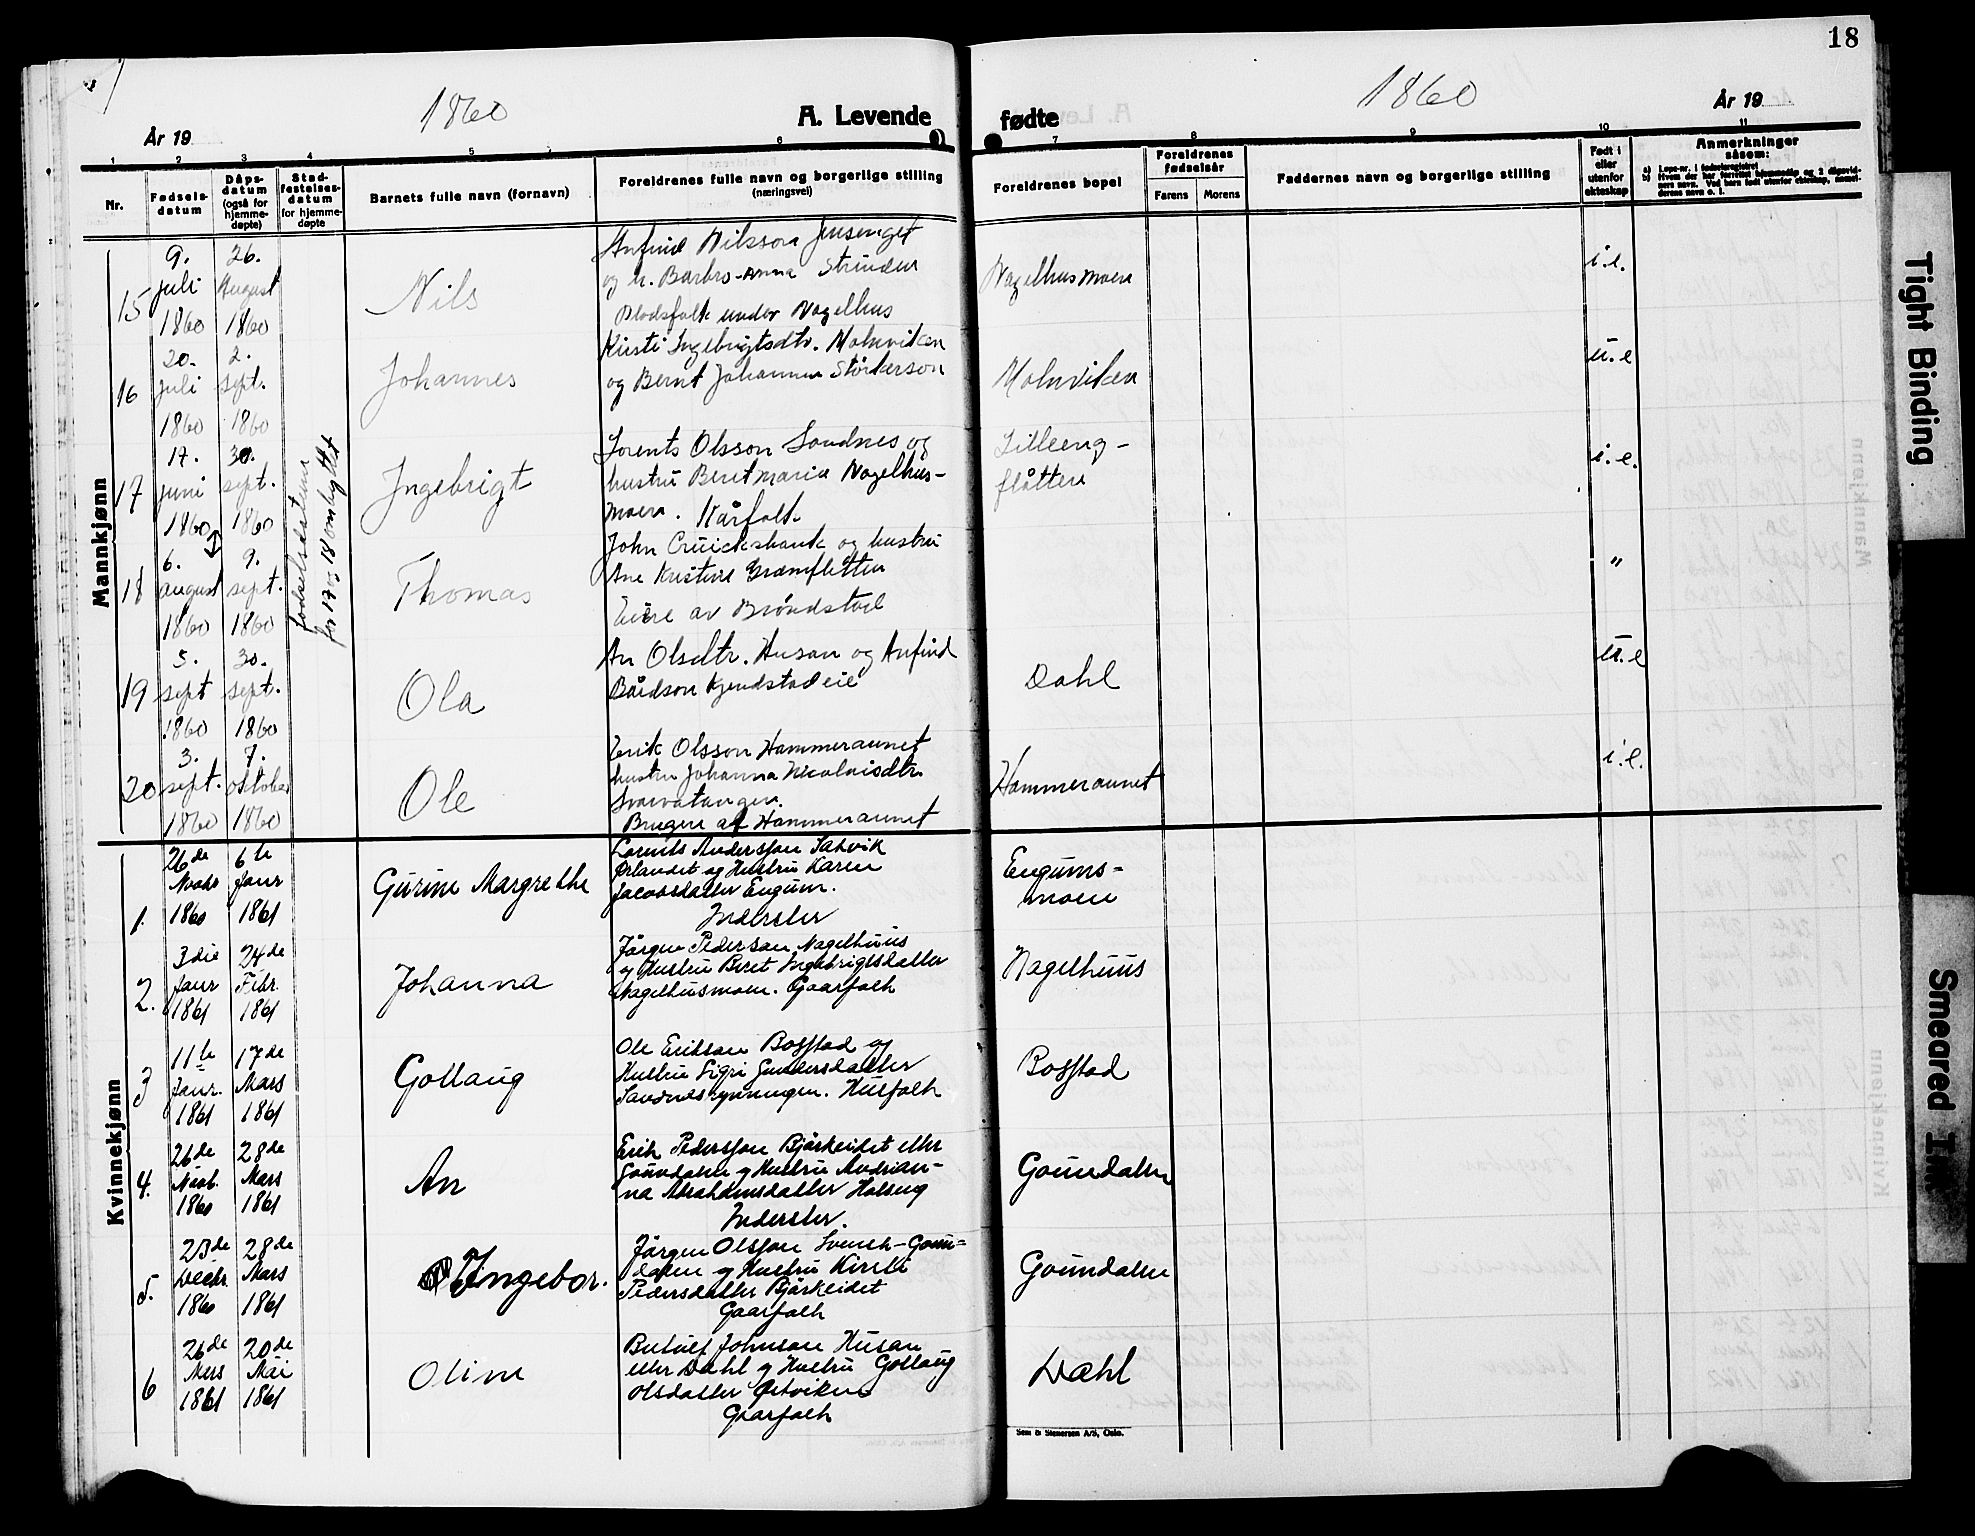 18
1860
A. Levende
fødte
1860
År 19
År 19
1 2 3 4 5 6 7 8 9 10 11
Nr.
Fødsels-
datum
Dåps-
datum
(også for
hjemme-
døpte)
Stad-
festelses-
datum
for hjemme-
døpte
Barnets fulle navn (fornavn)
Foreldrenes fulle navn og borgerlige stilling
(næringsvei)
Foreldrenes bopel
Foreldrenes
fødselsår
Farens
Morens
Faddernes navn og borgerlige stilling
Født i
eller
utenfor
ekteskap
Anmerkninger
såsom:
Mannkjønn
15
9.
juli
1860
26.
August
1860
Nils
Anfind Nilsson Jensenget
og h. Barbro-Anna Strinden
Plodsfolk under Nagelhus
Nagelhusmoen
i.e.
16
20.
juli
1860
2.
sept.
1860
Johannes
Kirsti Ingebrigtsdtr. Holmviken
og Bernt Johannes Störkerson
Holmviken
u.e
17
17.
juni
1860
30.
sept.
1860
fødselsdatum
for 17 og 18 ombyttet
Ingebrigt
Lorents Olsson Sandnes og
hustru Beret Maria Nagelhus-
moen. Kårfolk.
Lilleeng-
flåtten
i.e.
18
6.
august
1860
9.
sept.
1860
Thomas
John Cruickshank og hustru
Ane Kristine Gramfletten
Eiere av Brøndstad
"
19
5.
sept
1860
30.
sept.
1860
Ola
An Olsdtr. Husan og Anfind
Bårdson Kjendstadeie
Dahl
u.e
20
3.
sept.
1860
7.
oktober
1860
Ole
Erik Olsson Hammeraunet
hustru Johanna Nicolaisdtr.
Svarvatangen.
Brugere af Hammeraunet
Hammeraunet
i.e.
Kvinnekjønn
1.
26de
Novbr
1860
6te
Janr
1861
Gurine Margrethe
Lorents Anderssen Sakvik
Ørlandet og Hustru Karen
Jacobsdatter Engum.
Inderster
Engums=
moen
2.
3die
Janr
1861
24de
Febr.
1861
Johanna
Jörgen Pedersen Nagelhuus
og Hustru Beret Ingebrigtsdatter
Nagelhusmoen. Gaarfolk
Nagelhuus
3
11te
Janr.
1861
17de
Mars
1861
Gollaug
Ole Eriksen Bosstad og
Hustru Sigri Gundersdatter
Sandnesrynningen. Husfolk
Bosstad
4.
26de
Novb.
1860
28de
Mars
1861
An
Erik Pederssen Bjørkeidet eller
Gaundalen og Hustru Andrian-
na Abrahamsdatter Holseng
Inderster.
Gaundalen
5.
23de
Decbr.
1860
28de
Mars
1861
Ingebor.
Jörgen Olssen Svensk-Gaun=
dalen og Hustru Kirsti
Pedersdatter Bjørkeidet
Gaarfolk
Gaundalen
6
26de
Mars
1861
20de
Mai
1861
Oline
Botulf Johnsen Husan
eller Dahl og Hustru Gollaug
Olsdatter Østviken
Gaarfolk
Dahl
Sem & Stenersen A/S, Oslo.
Tight Binding
Smeared Ink